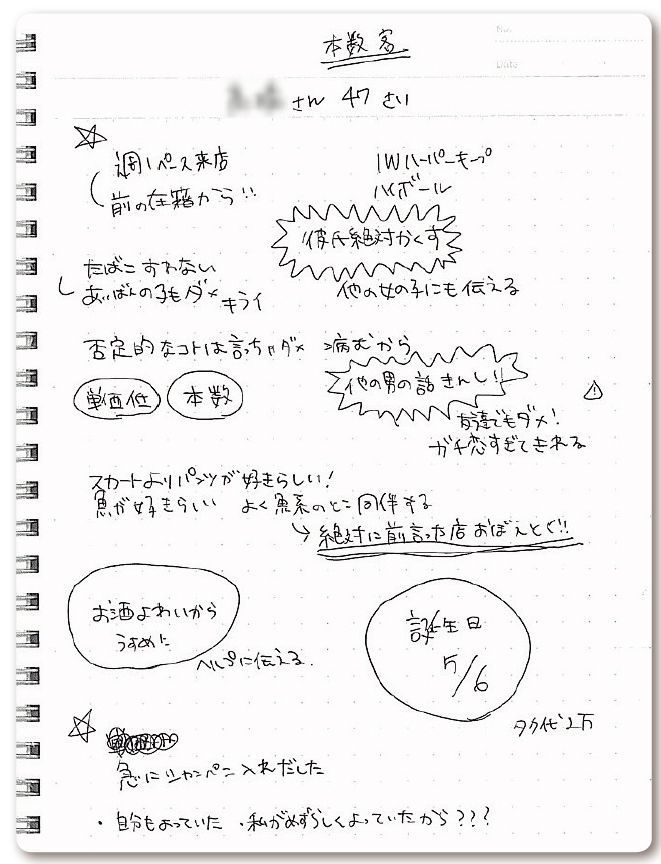 本数客
No.
Date
さん 47さい
週1ペース来店
前の在籍から!!
IWハーパーキープ
ハイボール
彼氏絶対かくす
他の女の子にも伝える
たばこすわない
あいばんの子もダメ キライ
否定的なコトは言っちゃダメ →病むから
単価低 本数
他の男の話きんし!!
友達でもダメ!
ガチ恋すぎてきれる
スカートよりパンツが好きらしい!
魚が好きらしい よく魚系のとこ同伴する
絶対に前言った店おぼえとく!!
お酒よわいから
うすめに
ヘルプに伝える
誕生日
5/6
タク代1万
急にシャンペン入れだした
・自分もよっていた ・私がめずらしくよっていたから???